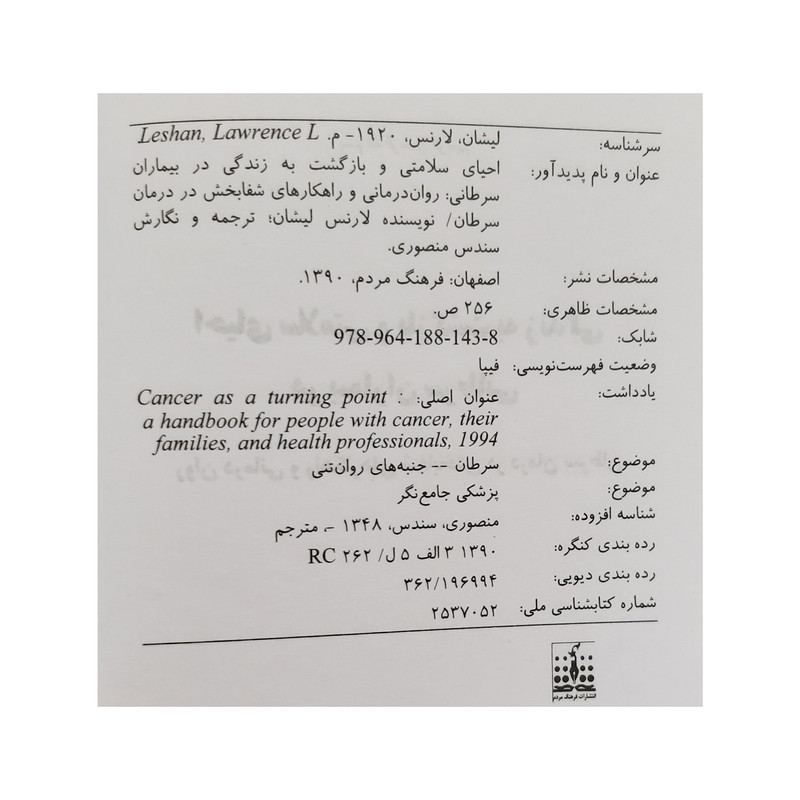 سرشناسه: لیشان، لارنس، ۱۹۲۰- م. Leshan, Lawrence L
عنوان و نام پدیدآور: احیای سلامتی و بازگشت به زندگی در بیماران
سرطانی: روان‌درمانی و راهکارهای شفابخش در درمان
سرطان/ نویسنده لارنس لیشان؛ ترجمه و نگارش
سندس منصوری.
مشخصات نشر: اصفهان: فرهنگ مردم، ۱۳۹۰.
مشخصات ظاهری: ۲۵۶ ص.
شابک: 978-964-188-143-8
وضعیت فهرست‌نویسی: فیپا
یادداشت: عنوان اصلی: Cancer as a turning point :
a handbook for people with cancer, their
families, and health professionals, 1994
موضوع: سرطان -- جنبه‌های روان‌تنی
موضوع: پزشکی جامع‌نگر
شناسه افزوده: منصوری، سندس، ۱۳۴۸ -، مترجم
رده بندی کنگره: ۱۳۹۰ ۳ الف ۵ ل/ ۲۶۲ RC
رده بندی دیویی: ۳۶۲/۱۹۶۹۹۴
شماره کتابشناسی ملی: ۲۵۳۷۰۵۲
انتشارات فرهنگ مردم